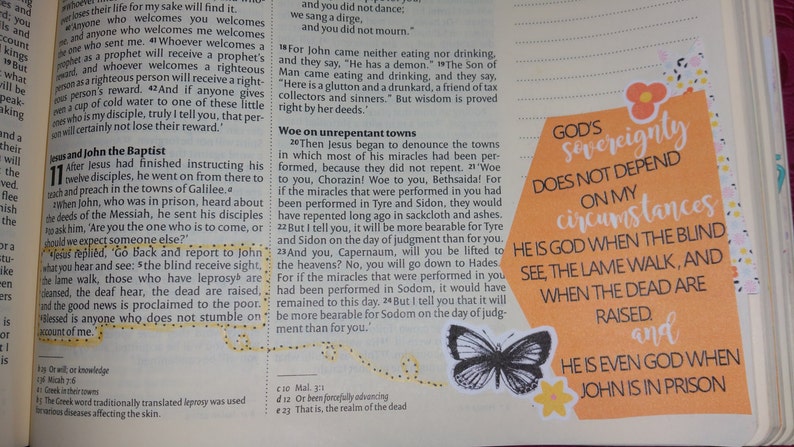 whoever
ever loses their life for my sake will find it.
40 'Anyone who welcomes you welcomes
me, and anyone who welcomes me welcomes
the one who sent me. 41 Whoever welcomes a
prophet as a prophet will receive a prophet's
reward, and whoever welcomes a righteous
person as a righteous person will receive a right-
eous person's reward. 42 And if anyone gives
even a cup of cold water to one of these little
ones who is my disciple, truly I tell you, that per-
son will certainly not lose their reward.'
Jesus and John the Baptist
11 After Jesus had finished instructing his
twelve disciples, he went on from there to
teach and preach in the towns of Galilee. a
2 When John, who was in prison, heard about
the deeds of the Messiah, he sent his disciples
3 to ask him, 'Are you the one who is to come, or
should we expect someone else?'
4 Jesus replied, 'Go Back and report to John
what you hear and see: 5 the blind receive sight,
the lame walk, those who have leprosy b are
cleansed, the deaf hear, the dead are raised,
and the good news is proclaimed to the poor.
6 Blessed is anyone who does not stumble on
account of me.'
b 25 Or will; or knowledge
c 36 Micah 7:6
a 1 Greek in their towns
b 5 The Greek word traditionally translated leprosy was used
for various diseases affecting the skin.
and you did not dance;
we sang a dirge,
and you did not mourn."
18 For John came neither eating nor drinking,
and they say, "He has a demon." 19 The Son of
Man came eating and drinking, and they say,
"Here is a glutton and a drunkard, a friend of tax
collectors and sinners." But wisdom is proved
right by her deeds.'
Woe on unrepentant towns
20 Then Jesus began to denounce the towns
in which most of his miracles had been per-
formed, because they did not repent. 21 'Woe
to you, Chorazin! Woe to you, Bethsaida! For
if the miracles that were performed in you had
been performed in Tyre and Sidon, they would
have repented long ago in sackcloth and ashes.
22 But I tell you, it will be more bearable for Tyre
and Sidon on the day of judgment than for you.
23 And you, Capernaum, will you be lifted to
the heavens? No, you will go down to Hades.
For if the miracles that were performed in you
had been performed in Sodom, it would have
remained to this day. 24 But I tell you that it will
be more bearable for Sodom on the day of judg-
ment than for you.'
c 10 Mal. 3:1
d 12 Or been forcefully advancing
e 23 That is, the realm of the dead
GOD'S
sovereignty
DOES NOT DEPEND
ON MY
circumstances
HE IS GOD WHEN THE BLIND
SEE, THE LAME WALK, AND
WHEN THE DEAD ARE
RAISED
and
HE IS EVEN GOD WHEN
JOHN IS IN PRISON